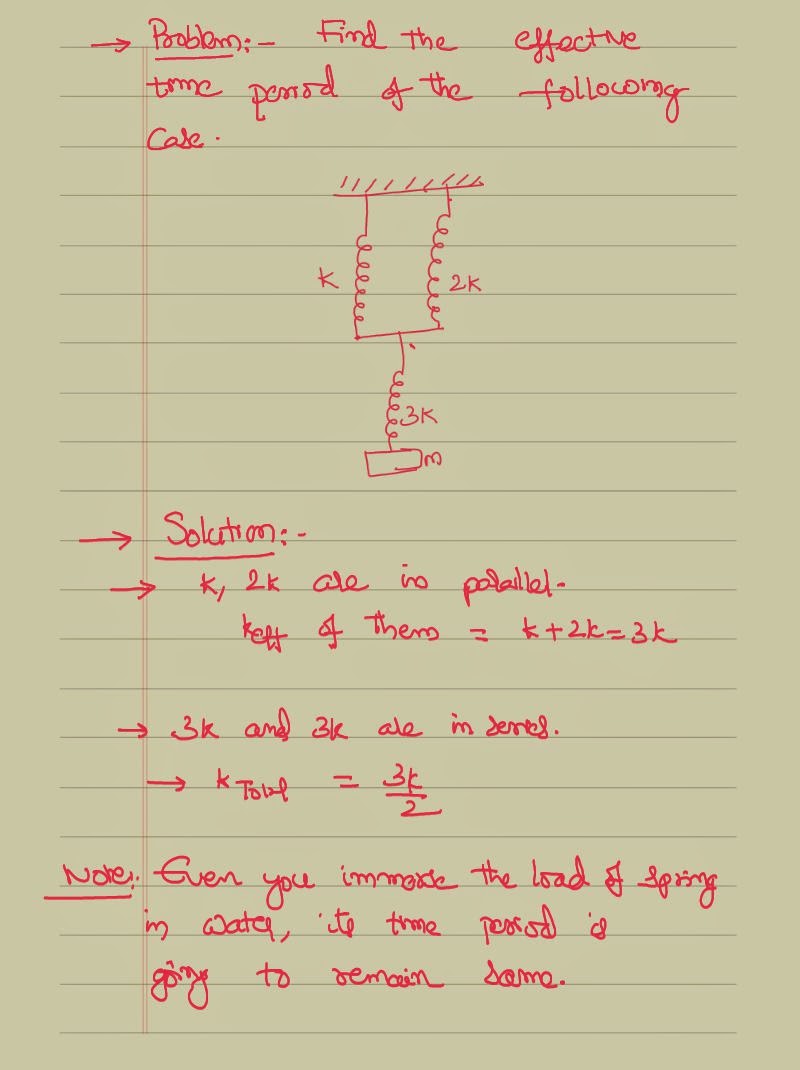 → Problem:- Find the effective
time period of the following
Case.
k
2k
3k
m
→ Solution:-
→ k, 2k are in parallel.
keff of them = k+2k=3k
→ 3k and 3k are in series.
→ k Total = 3k/2
Note:. Even you immerse the load of spring
in water, its time period is
going to remain same.